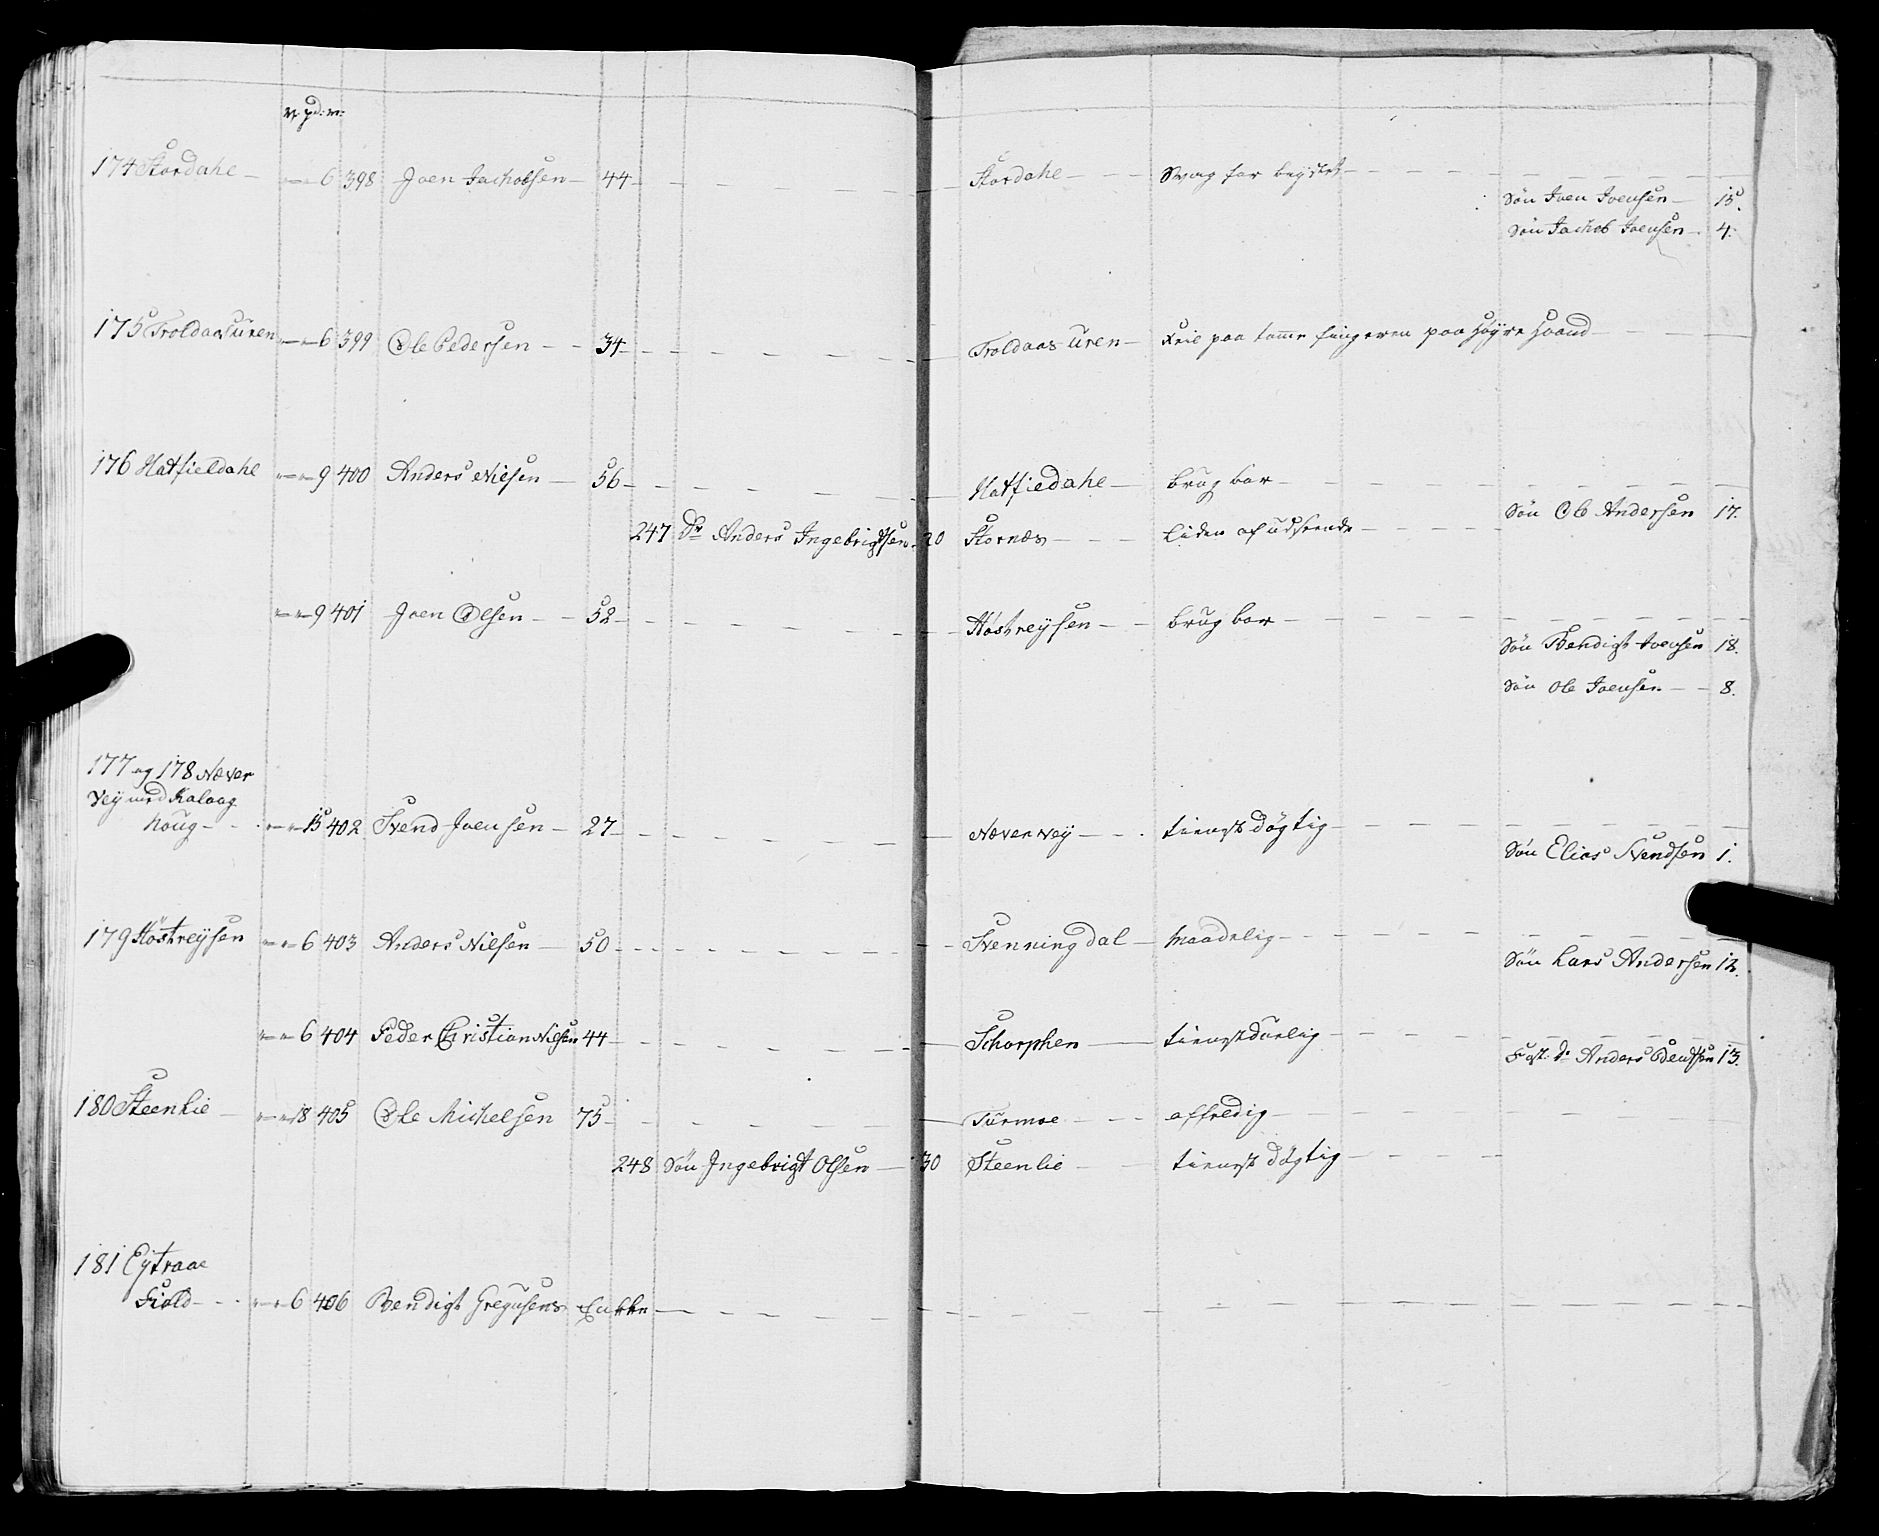 v. pd: m:
174 Stordahl — " — " — 6 398 Joen Jachobsen — 44 — Stordahl — Svag for brystet —
Søn Joen Joensen — 15.
Søn Jachob Joensen — 4.
175 Troldaasuren " — " — 6 399 Ole Pedersen — 34 — Troldaas uren — Feil paa tomme fingeren paa Høyre Haand —
176 Hatfieldahl " — " — 9 400 Anders Nielsen — 56 — Hatfiedahl — brug bar —
Søn Ole Andersen 17.
247 Dr Anders Ingebrigtsen 20 Stornæs — Liden af udseende —
" — " — 9 401 Joen Olsen — 52 — Høstreysen — brug bar —
Søn Bendigt Joensen 18.
Søn Ole Joensen — 8.
177 og 178 Næver
vey med Kalaag
houg — " — " — 15 402 Svend Joensen — 27 — Nævervey — tienst døgtig —
Søn Elias Svendsen 1.
179 Høstreysen " — " — 6 403 Anders Nilsen — 50 — Svenningdal — Maadelig —
Søn Lars Andersen 12.
" — " — 6 404 Peder Christian Nilsen 44 — Schorphen — tienstdurlig —
Fost: Sn Anders Bentsen 13.
180 Steenlie — " — " 18 405 Ole Michelsen 75 — Turmoe — affeldig —
248 Søn Ingebrigt Olsen — 30 Steenlie — tienst døgtig —
181 Eytraae
Fiold — " — " — 6 406 Bendigt Gregusens Enkke —